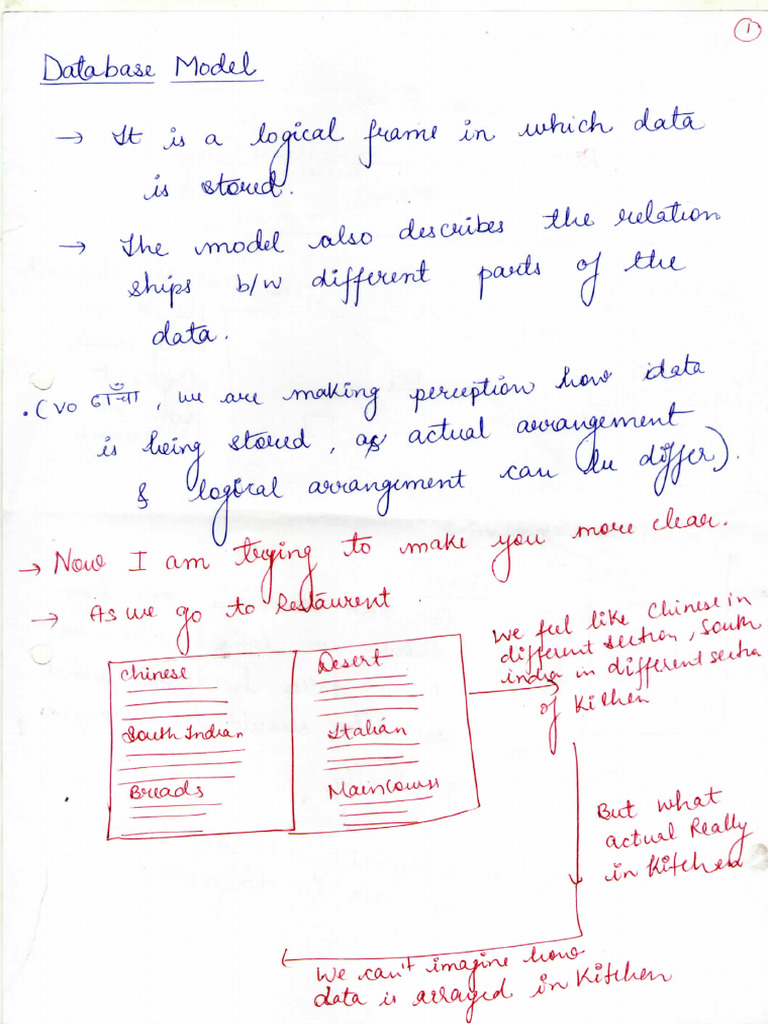 1
Database Model
→ It is a logical frame in which data
is stored.
→ The model also describes the relation
ships b/w different parts of the
data.
• (vo ढाँचा, we are making perception how data
is being stored, as actual arrangement
& logical arrangement can be differ).
→ Now I am trying to make you more clear.
→ As we go to Restaurent.
Chinese
South Indian
Breads
Desert
Italian
Maincourss
We feel like Chinese in
different section, South
india in different sectio
of Kitchen
But what
actual Really
in Kitchen
We can't imagine how
data is arraged in Kitchen